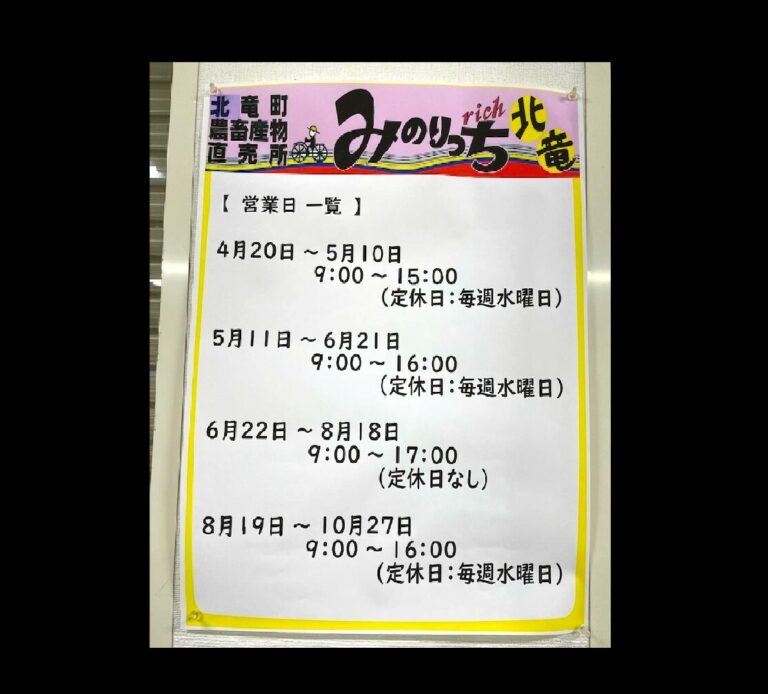 北竜町
農畜産物
直売所
みのりっち
rich
北竜
【 営業日 一覧 】
4月20日 ～ 5月10日
9:00 ～ 15:00
(定休日:毎週水曜日)
5月11日 ～ 6月21日
9:00 ～ 16:00
(定休日:毎週水曜日)
6月22日 ～ 8月18日
9:00 ～ 17:00
(定休日なし)
8月19日 ～ 10月27日
9:00 ～ 16:00
(定休日:毎週水曜日)